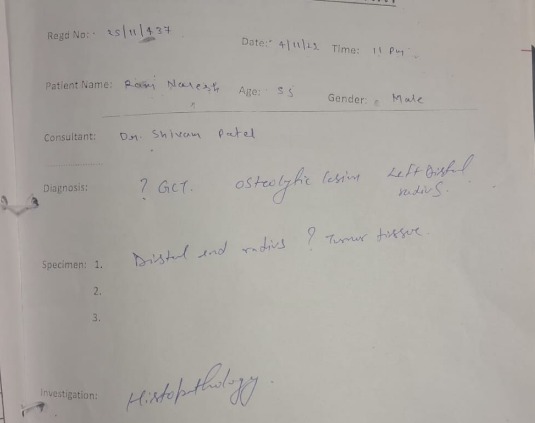 Regd No: 25/11/437
Date: 4/11/22 Time: 11 PM
Patient Name: Ram Naresh Age: 35 Gender: Male
Consultant: Dr. Shivam Patel
Diagnosis: ? GCT. Osteolytic lesion Left Distal
radius.
Specimen: 1. Distal end radius ? Tumor tissue.
2.
3.
Investigation: Histopthology.